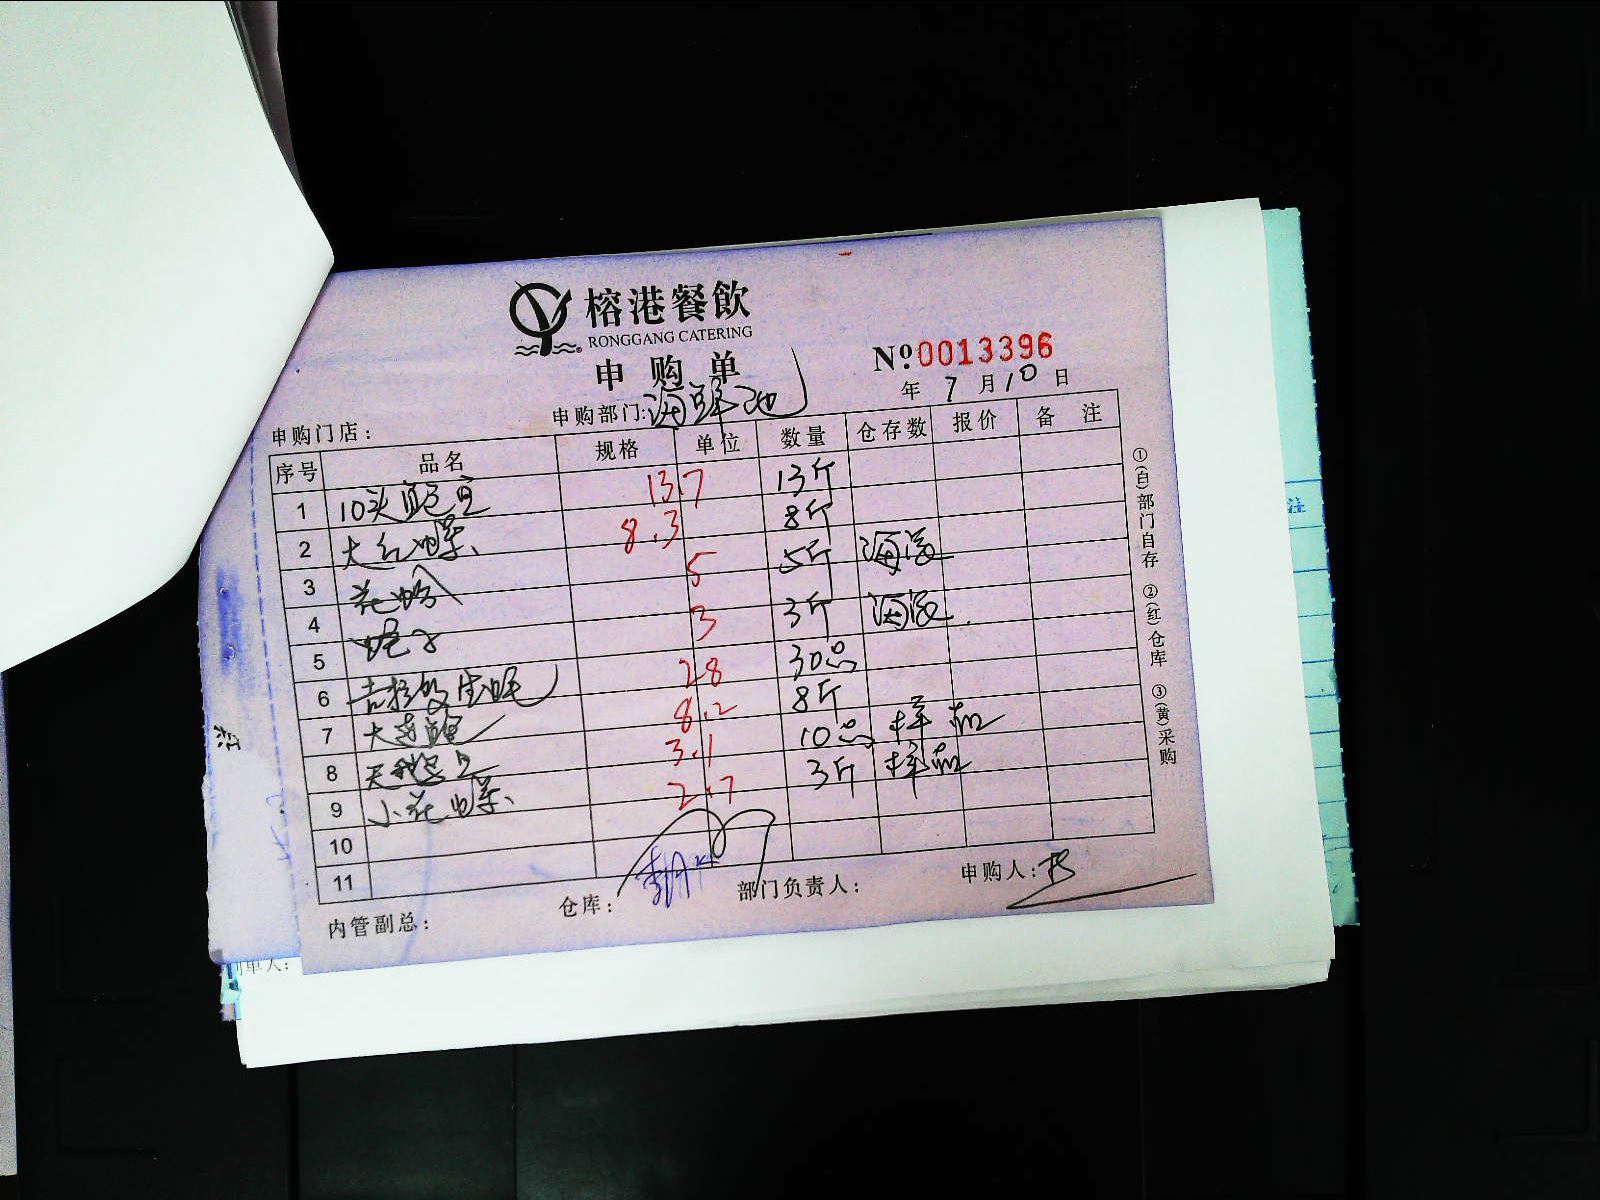 榕港餐飲
RONGGANG CATERING
申购单
Nº 0013396
年 7 月 10 日
申购门店： 申购部门：海鲜池
序号 品名 规格 单位 数量 仓存数 报价 备注
1 10头鲍鱼 13.7 13斤
2 大红螺 8.3 8斤
3 花蛤 5 5斤 海鲜
4 蛏子 3 3斤 海鲜
5 吉拉多生蚝 28 30只
6 大连鲍 8.2 8斤
7 10只 样品
8 小花螺 2.7 3斤 样品
9
10
11
内管副总： 仓库： 部门负责人： 申购人：
①(白)部门自存 ②(红)仓库 ③(黄)采购
制单人：